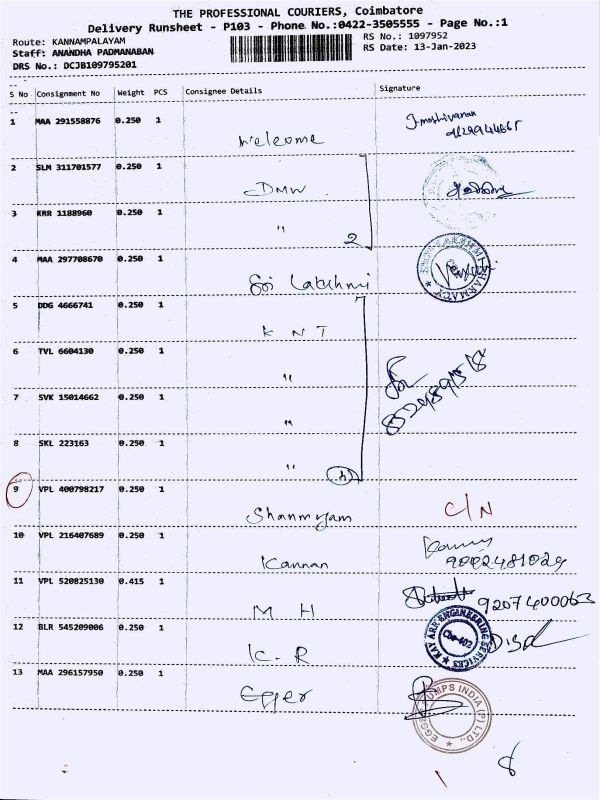 THE PROFESSIONAL COURIERS, Coimbatore
Delivery Runsheet - P103 - Phone No.:0422-3505555 - Page No.:1
Route: KANNAMPALAYAM RS No.: 1097952
Staff: ANANDHA PADMANABAN RS Date: 13-Jan-2023
DRS No.: DCJB109795201
S No Consignment No Weight PCS Consignee Details Signature
1 MAA 291558876 0.250 1
Welcome
2 SLM 311701577 0.250 1
DMW
3 KRR 1188960 0.250 1
" 2
4 MAA 297708670 0.250 1
Sri Lakshmi
5 DDG 4666741 0.250 1
K N T
6 TVL 6604130 0.250 1
"
7 SVK 15014662 0.250 1
"
8 SKL 223163 0.250 1
" 4
9 VPL 400798217 0.250 1
Shanmugam C/N
10 VPL 216407689 0.250 1
Kannan 9002481029
11 VPL 520825130 0.415 1
M H 9207400063
12 BLR 545209006 0.250 1
K-R
KAY ARR ENGINEERING SERVICES
Cbe-402
13 MAA 296157950 0.250 1
Egger
EGGER PUMPS INDIA (P) LTD.,
8